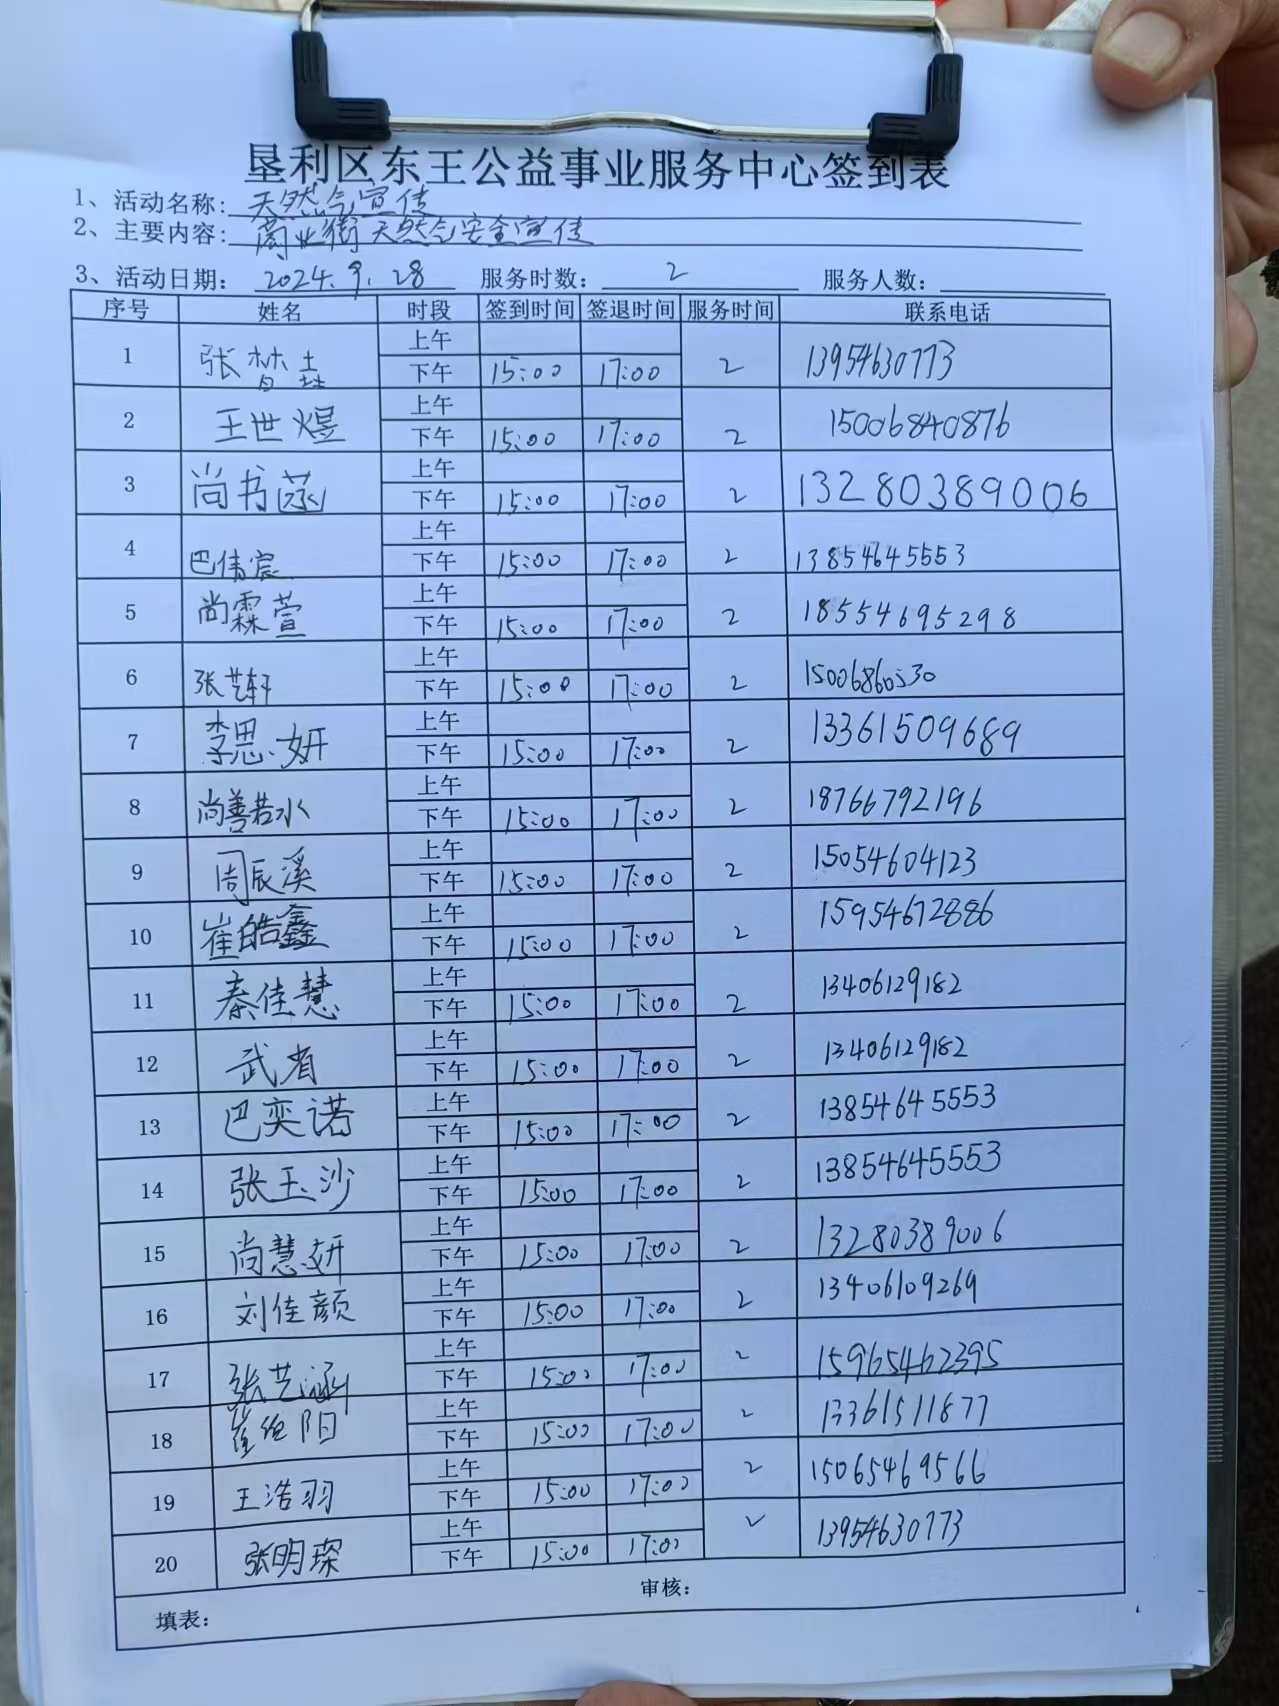 垦利区东王公益事业服务中心签到表
1、活动名称: 天然气宣传
2、主要内容: 商业街天然气安全宣传
3、活动日期: 2024.9.28 服务时数: 2 服务人数:
序号 姓名 时段 签到时间 签退时间 服务时间 联系电话
1 张 上午
下午 15:00 17:00 2 13954630773
2 王世煜 上午
下午 15:00 17:00 2 15006840876
3 尚书菡 上午
下午 15:00 17:00 2 13280389006
4 巴倩宸 上午
下午 15:00 17:00 2 13854645553
5 尚霖萱 上午
下午 15:00 17:00 2 18554695298
6 张艺轩 上午
下午 15:00 17:00 2 15006860530
7 李思妍 上午
下午 15:00 17:00 2 13361509689
8 尚善若水 上午
下午 15:00 17:00 2 18766792196
9 周辰溪 上午
下午 15:00 17:00 2 15054604123
10 崔皓鑫 上午
下午 15:00 17:00 2 15954672886
11 秦佳慧 上午
下午 15:00 17:00 2 13406129182
12 武肖 上午
下午 15:00 17:00 2 13406129182
13 巴奕诺 上午
下午 15:00 17:00 2 13854645553
14 张玉沙 上午
下午 15:00 17:00 2 13854645553
15 尚慧妍 上午
下午 15:00 17:00 2 13280389006
16 刘佳颜 上午
下午 15:00 17:00 2 13406109269
17 张艺涵 上午
下午 15:00 17:00 2 15965462395
18 崔 阳 上午
下午 15:00 17:00 2 13361511877
19 王浩羽 上午
下午 15:00 17:00 2 15065469566
20 张明琛 上午
下午 15:00 17:00 2 13954630773
填表: 审核: